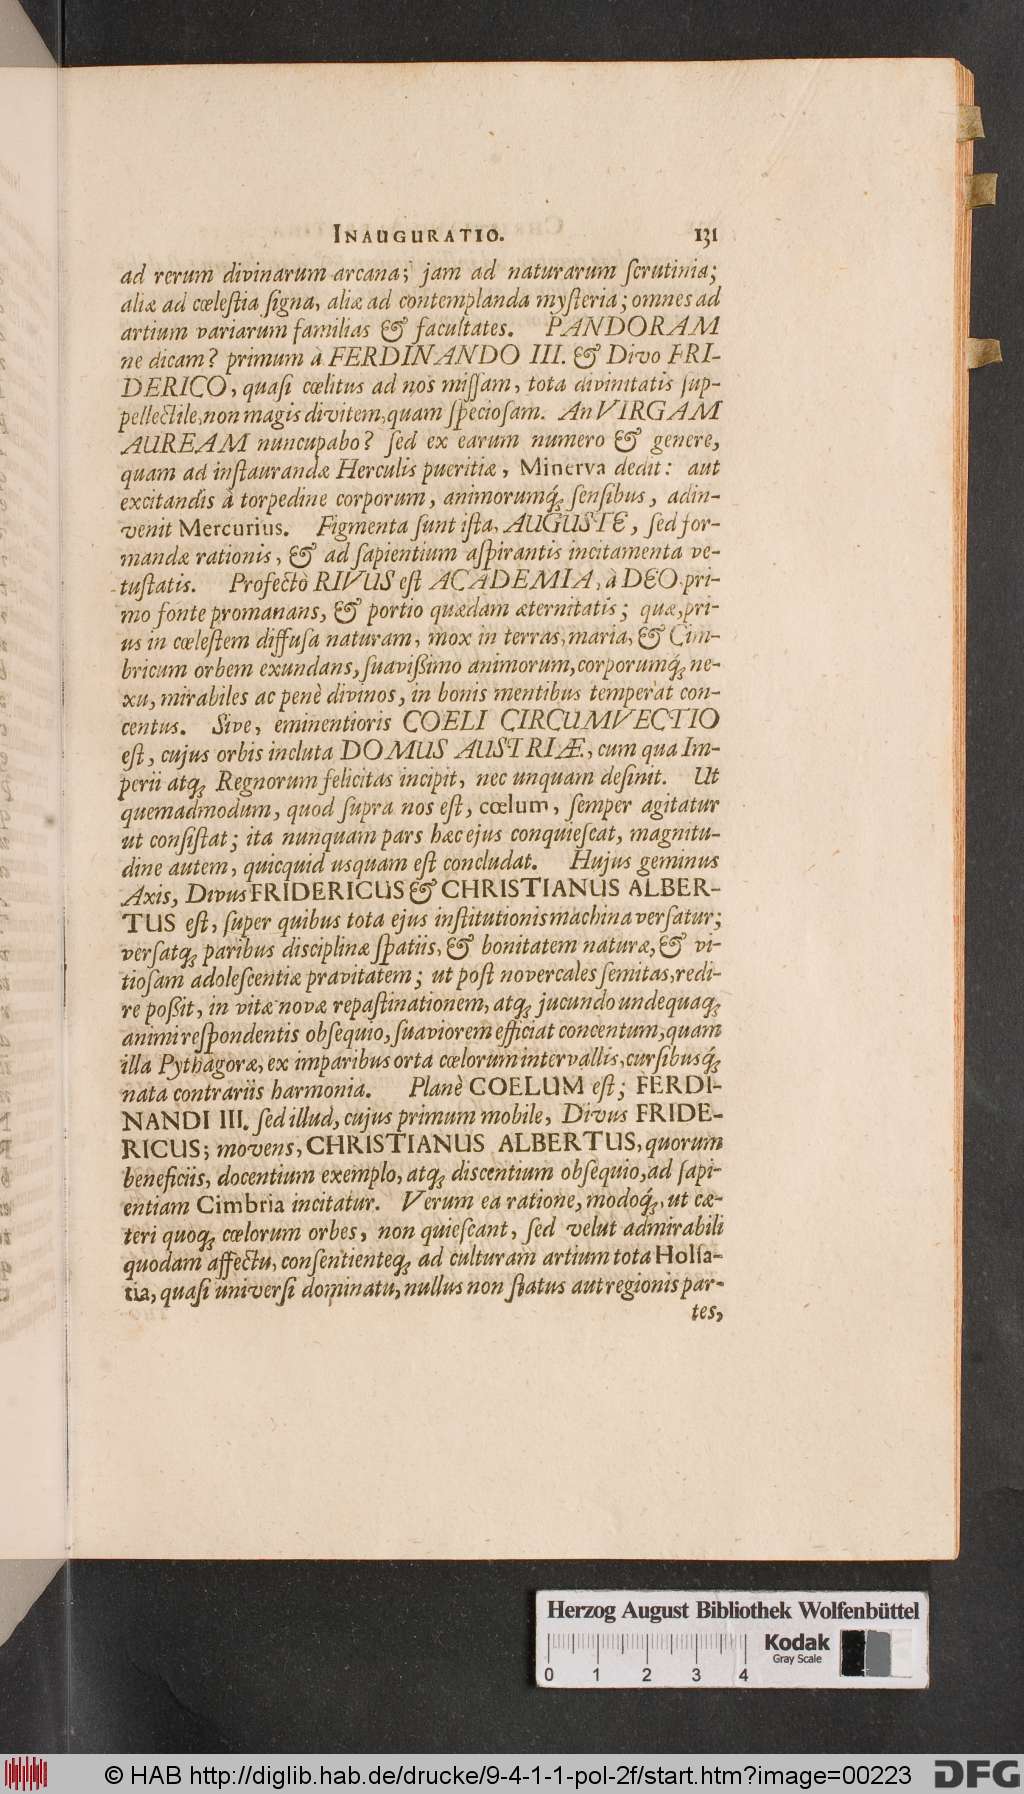 INAUGURATIO. 131
ad rerum divinarum arcana; jam ad naturarum ſcrutinia;
aliæ ad cœleſtia ſigna, aliæ ad contemplanda myſteria; omnes ad
artium variarum familias & facultates. PANDORAM
ne dicam? primum à FERDINANDO III. & Divo FRI-
DERICO, quaſi cœlitus ad nos miſſam, tota divinitatis ſup-
pellectile, non magis divitem, quam ſpecioſam. An VIRGAM
AUREAM nuncupabo? ſed ex earum numero & genere,
quam ad inſtaurandæ Herculis pueritiæ, Minerva dedit: aut
excitandis à torpedine corporum, animorumq́; ſenſibus, adin-
venit Mercurius. Figmenta ſunt iſta, AUGUSTE, ſed for-
mandæ rationis, & ad ſapientium aſpirantis incitamenta ve-
tuſtatis. Profectò RIVUS eſt ACADEMIA, à DEO pri-
mo fonte promanans, & portio quædam æternitatis; quæ, pri-
us in cœleſtem diffuſa naturam, mox in terras, maria, & Cim-
bricum orbem exundans, ſuavißimo animorum, corporumq́; ne-
xu, mirabiles ac penè divinos, in bonis mentibus temperat con-
centus. Sive, eminentioris COELI CIRCUMVECTIO
eſt, cujus orbis incluta DOMUS AUSTRIÆ, cum qua Im-
perii atq; Regnorum felicitas incipit, nec unquam deſinit. Ut
quemadmodum, quod ſupra nos eſt, cœlum, ſemper agitatur
ut conſiſtat; ita nunquam pars hæc ejus conquieſcat, magnitu-
dine autem, quicquid usquam eſt concludat. Hujus geminus
Axis, Divus FRIDERICUS & CHRISTIANUS ALBER-
TUS eſt, ſuper quibus tota ejus inſtitutionis machina verſatur;
verſatq; paribus disciplinæ ſpatiis, & bonitatem naturæ, & vi-
tioſam adoleſcentiæ pravitatem; ut poſt novercales ſemitas, redi-
re poßit, in vitæ novæ repaſtinationem, atq; jucundo undequaq;
animi reſpondentis obſequio, ſuaviorem efficiat concentum, quam
illa Pythagoræ, ex imparibus orta cœlorum intervallis, curſibusq́;
nata contrariis harmonia. Planè COELUM eſt; FERDI-
NANDI III. ſed illud, cujus primum mobile, Divus FRIDE-
RICUS; movens, CHRISTIANUS ALBERTUS, quorum
beneficiis, docentium exemplo, atq; discentium obſequio, ad ſapi-
entiam Cimbria incitatur. Verum ea ratione, modoq́;, ut cæ-
teri quoq; cœlorum orbes, non quieſcant, ſed velut admirabili
quodam affectu, conſentienteq; ad culturam artium tota Holſa-
tia, quaſi univerſi dominatu, nullus non ſtatus aut regionis par-
tes,
Herzog August Bibliothek Wolfenbüttel
0 1 2 3 4
Kodak
Gray Scale
© HAB http://diglib.hab.de/drucke/9-4-1-1-pol-2f/start.htm?image=00223
DFG